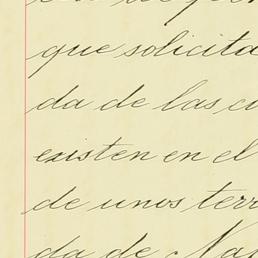 que solicita
da de las
existen en el
de unos
da de